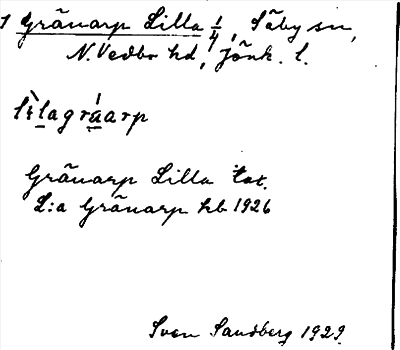 1 Gränarp Lilla 1/4, Säby sn,
N. Vedbo hd, Jönk. l.
Gränarp Lilla tot.
L:a Gränarp hb 1926
Sven Sandberg 1929.